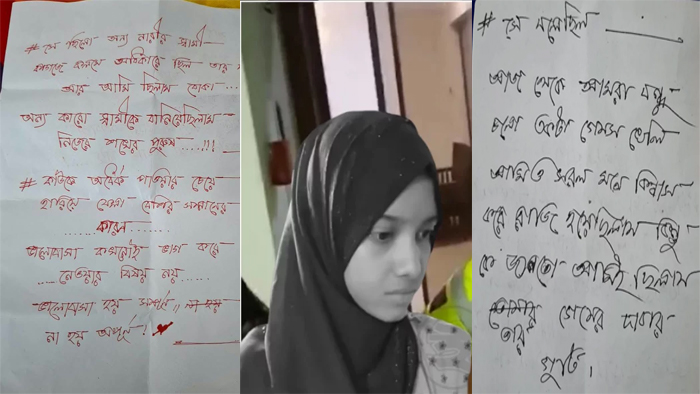 # সে ছিলো অন্য নারীর স্বামী
কাগজে কলমে অধিকারে ছিল তার
আর আমি ছিলাম বোকা ...
অন্য কারো স্বামীকে বানিয়েছিলাম
নিজের শখের পুরুষ....!!!
# কাউকে অর্ধেক পাওয়ার চেয়ে
হারিয়ে ফেলা বেশির সম্মানের
...... কারন ......
ভালোবাসা কখনোই ভাগ করে
.... নেওয়ার বিষয় নয়......
ভালোবাসা হয় সম্পূর্ণ,, না হয়
না হয় অপূর্ণ !
# সে বলেছিল
আজ থেকে আমরা বন্ধু
চলো একটা গেমস খেলি
আমিও সরল মনে বিশ্বাস
করে রাজি হয়েছিলাম কিন্তু
কে জানতো আমিই ছিলাম
তার গেমের দাবার
গুটি।